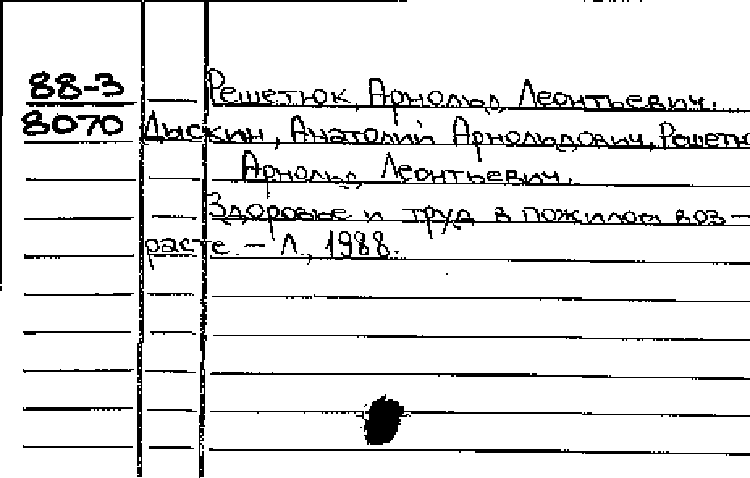 88-3 Решетюк, Арнольд Леонтьевич.
8070 Дыскин, Анатолий Арнольдович, Решетю
Арнольд Леонтьевич.
Здоровье и труд в пожилом воз-
расте. - Л., 1988.